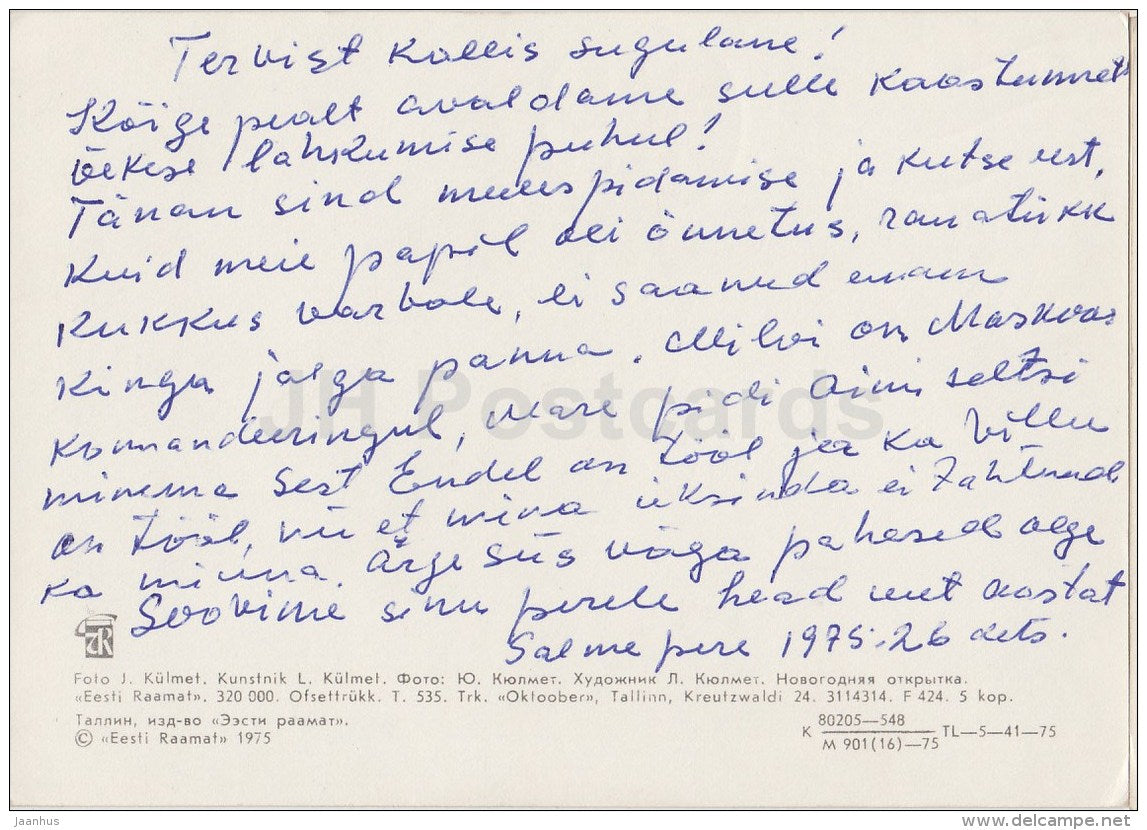 Tervist Kallis sugulane!
Kõige pealt avaldame sulle kaastunnet
õekese lahkumise puhul!
Tänan sind meelespidamise ja kutse eest,
Kuid meie papil oli õnnetus, rauatükk
Kukkus varbale, ei saanud enam
Kinga jalga panna. Milvi on Moskvas
komandeeringul, Mare pidi Aini seltsi
minema sest Endel on tööl ja ka Villu
on tööl, nii et mina üksinda ei tahtnud
ka minna. Ärge siis väga pahased olge
Soovime sinu perele head uut aastat
Salme pere 1975.26 dets.
JH Postcards
Foto J. Külmet. Kunstnik L. Külmet. Фото: Ю. Кюлмет. Художник Л. Кюлмет. Новогодняя открытка.
«Eesti Raamat». 320 000. Ofsettrükk. T. 535. Trk. «Oktoober», Tallinn, Kreutzwaldi 24. 3114314. F 424. 5 kop.
Таллин, изд-во «Ээсти раамат».
© «Eesti Raamat» 1975
K 80205—548 TL—5—41—75
M 901(16)—75
jaanhus
www.delcampe.net